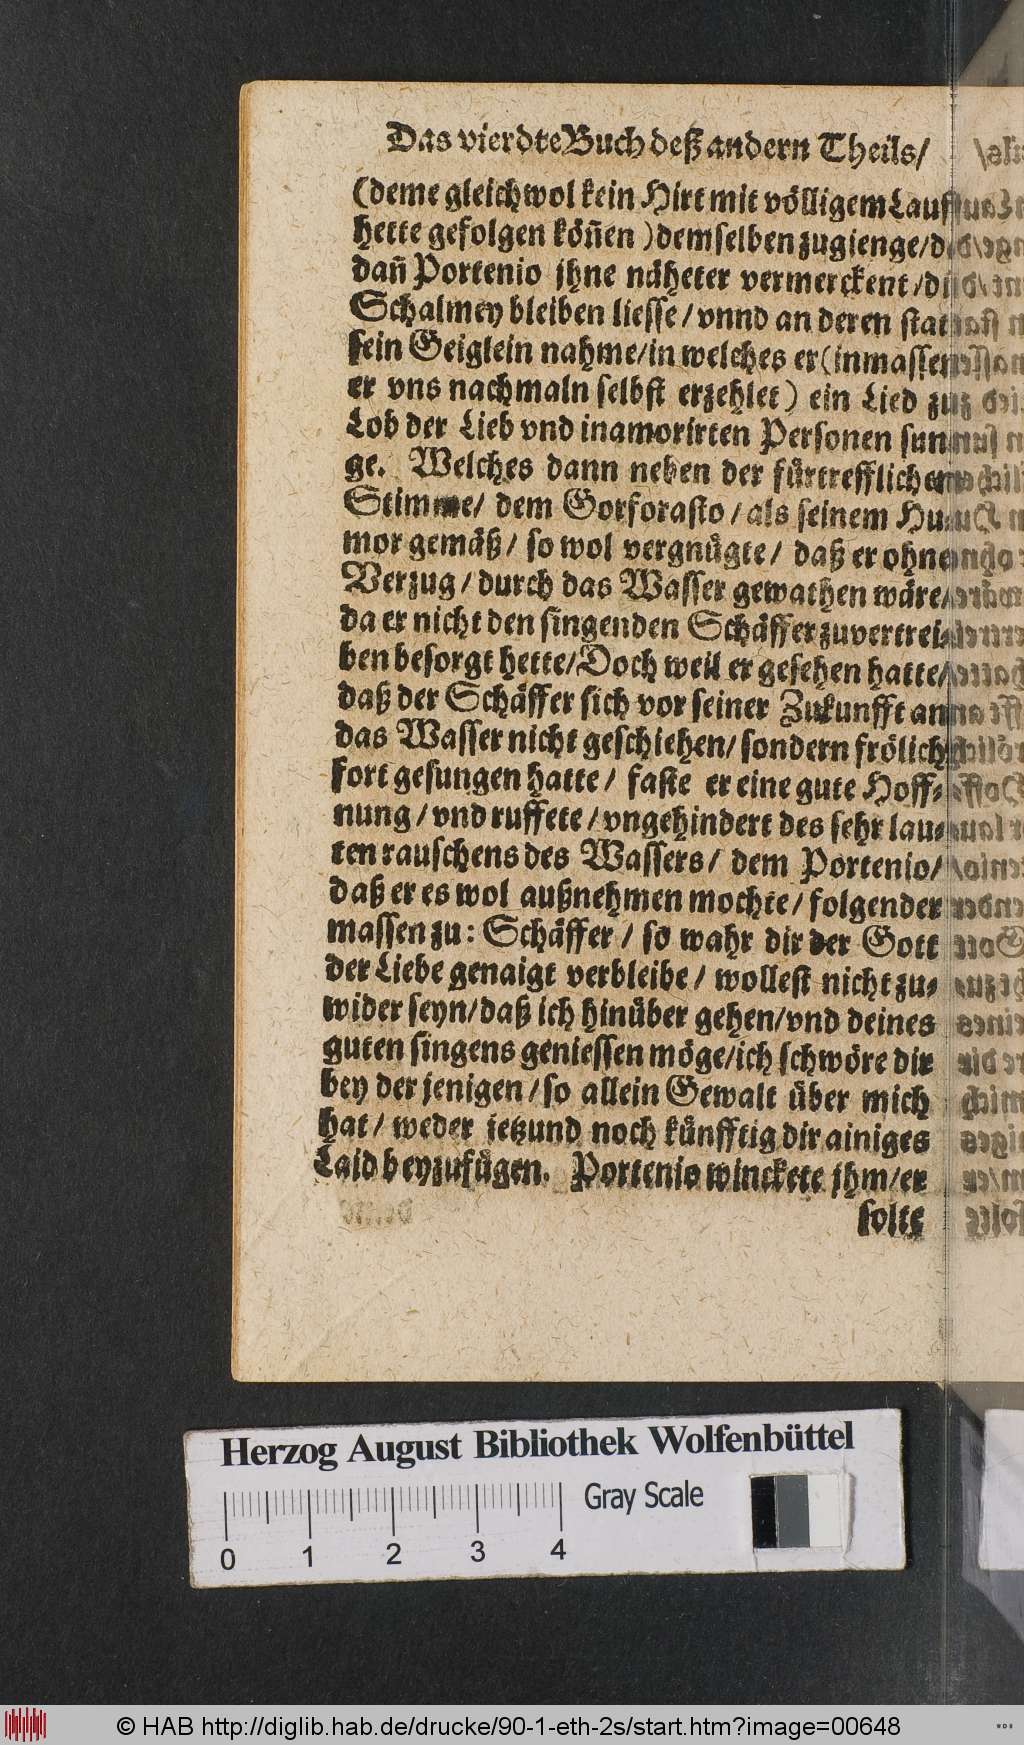 Das vierdte Buch deß andern Theils/
(deme gleichwol kein Hirt mit völligem Lauff
hette gefolgen köñen) demselben zugienge/
dañ Portenio jhne näheter vermerckent/
Schalmey bleiben liesse/ vnnd an deren stat
sein Geiglein nahme/ in welches er (inmassen
er vns nachmaln selbst erzehlet) ein Lied zu
Lob der Lieb vnd inamorirten Personen sun-
ge. Welches dann neben der fürtrefflichen
Stimme/ dem Gorforasto/ als seinem Hu-
mor gemäß/ so wol vergnügte/ daß er ohne
Verzug/ durch das Wasser gewathen wäre/
da er nicht den singenden Schäffer zuvertrei-
ben besorgt hette/ Doch weil er gesehen hatte/
daß der Schäffer sich vor seiner Zukunfft an
das Wasser nicht geschiehen/ sondern frölich
fort gesungen hatte/ faste er eine gute Hoff-
nung/ vnd ruffete/ vngehindert des sehr lau-
ten rauschens des Wassers/ dem Portenio/
daß er es wol außnehmen mochte/ folgender
massen zu: Schäffer/ so wahr dir der Gott
der Liebe genaigt verbleibe/ wollest nicht zu-
wider seyn/ daß ich hinüber gehen/ vnd deines
guten singens geniessen möge/ ich schwöre dir
bey der jenigen/ so allein Gewalt über mich
hat/ weder jetzund noch künfftig dir ainiges
Laid beyzufügen. Portenio winckete jhm/ er
solte
Herzog August Bibliothek Wolfenbüttel
Gray Scale
0 1 2 3 4
© HAB http://diglib.hab.de/drucke/90-1-eth-2s/start.htm?image=00648